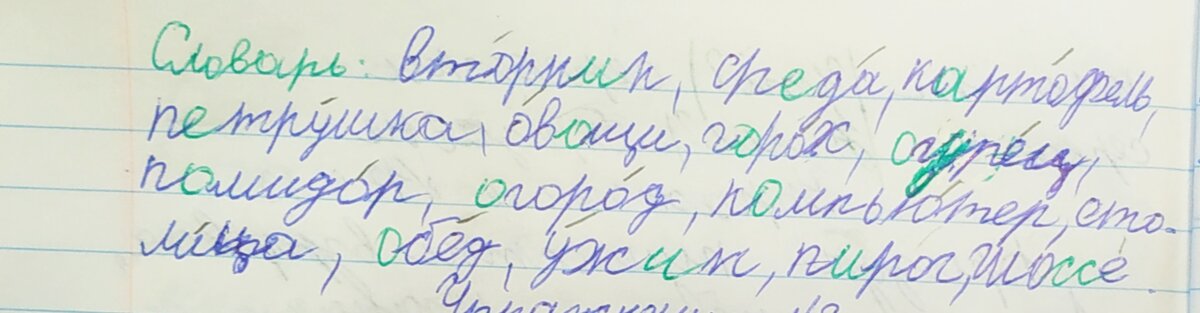 Словарь: вто́рник, среда́, карто́фель,
петру́шка, о́вощи, горо́х, огуре́ц,
помидо́р, огоро́д, компью́тер, сто-
ли́ца, обе́д, у́жин, пирог, шоссе́.